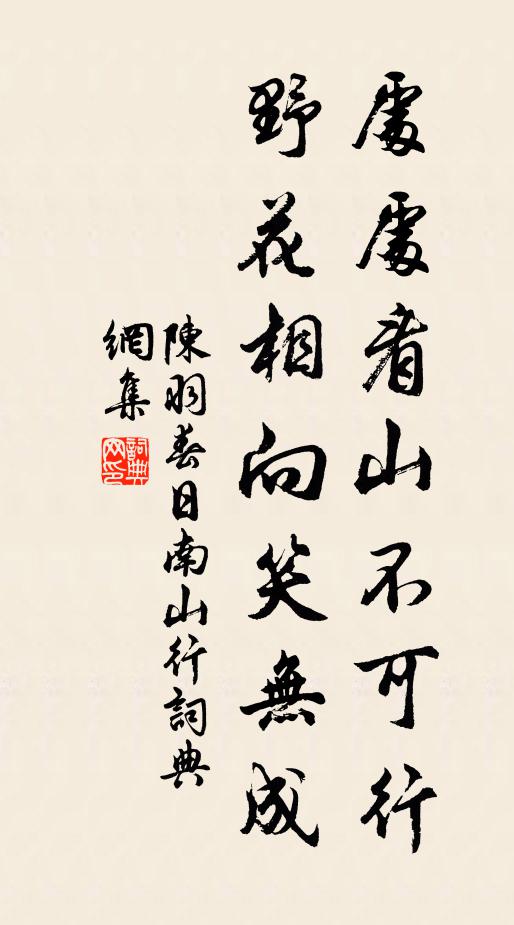 處處看山不可行
野花相向笑無成
陳羽春日南山行詞典
網集
詞典
网印